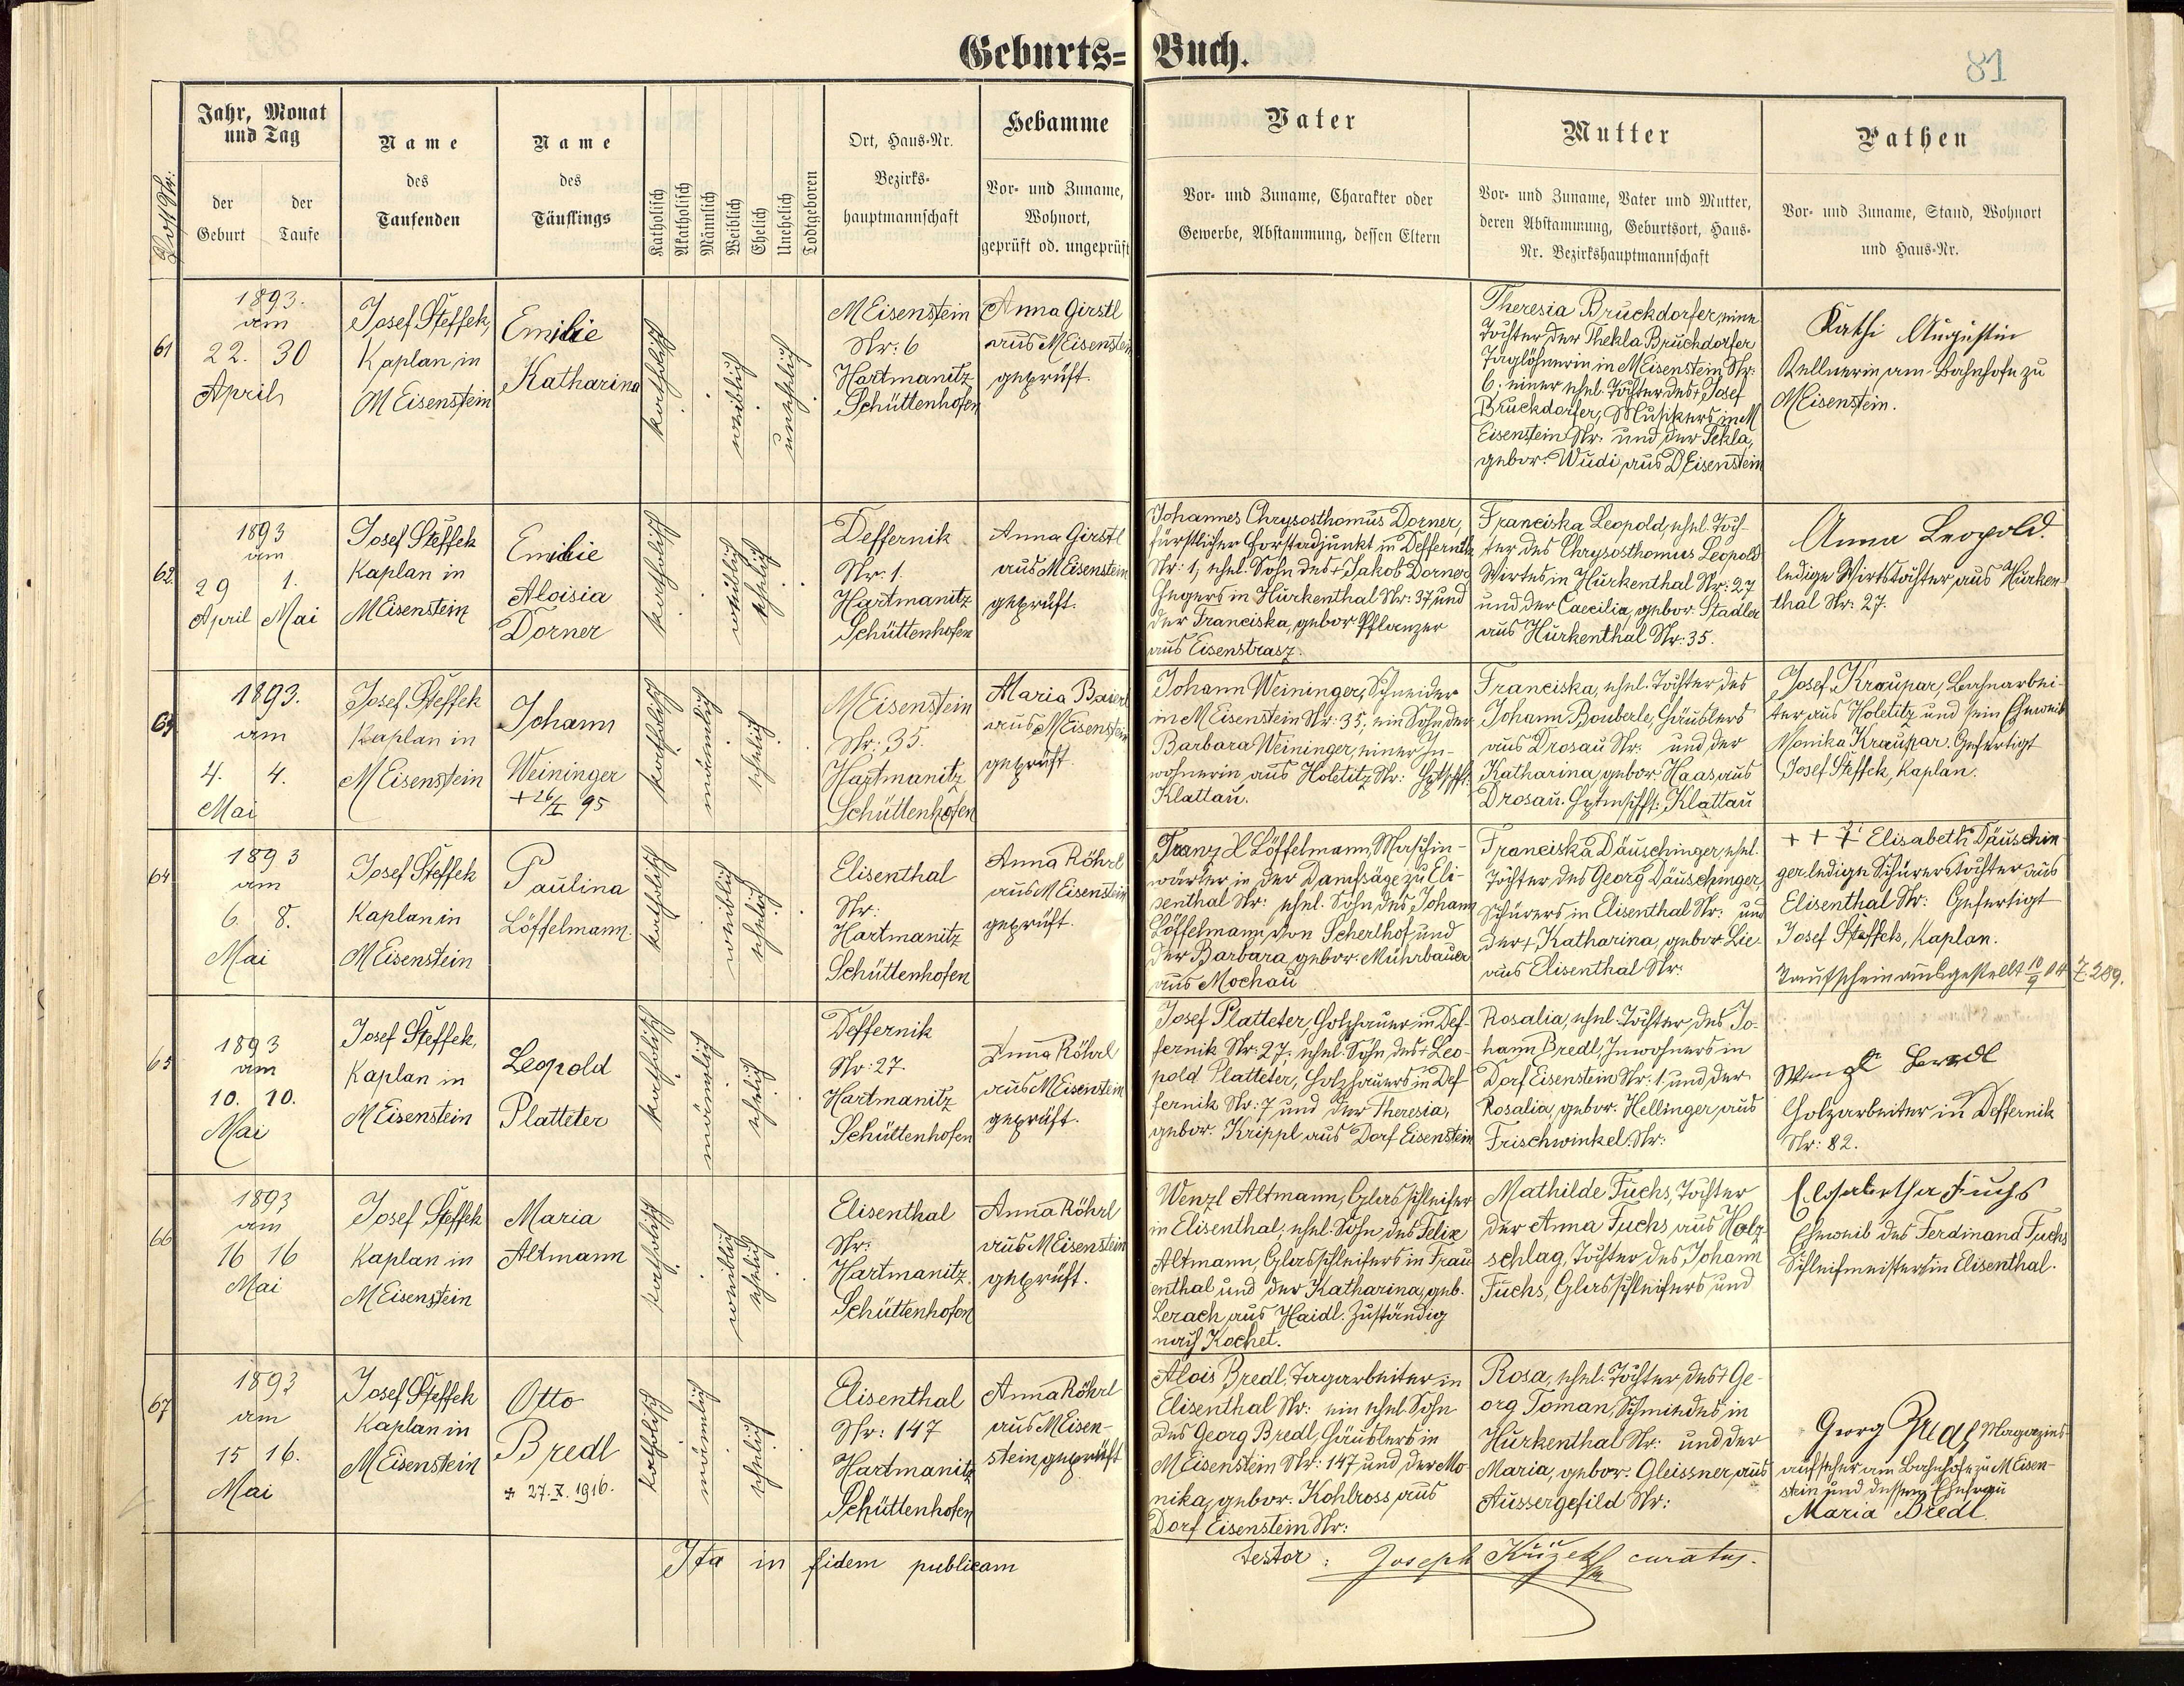 Geburts= Buch.
81
Post Nr.
Jahr, Monat
und Tag
der Geburt
der Taufe
Name
des
Taufenden
Name
des
Täuflings
Katholisch
Akatholisch
Männlich
Weiblich
Ehelich
Unehelich
Todtgeboren
Ort, Haus-Nr.
Bezirks-
hauptmannschaft
Hebamme
Vor- und Zuname,
Wohnort,
geprüft od. ungeprüft
Vater
Vor- und Zuname, Charakter oder
Gewerbe, Abstammung, dessen Eltern
Mutter
Vor- und Zuname, Vater und Mutter,
deren Abstammung, Geburtsort, Haus-
Nr. Bezirkshauptmannschaft
Pathen
Vor- und Zuname, Stand, Wohnort
und Haus-Nr.
61
1893.
am
22. 30
April
Josef Steffek,
Kaplan in
M Eisenstein
Emilie
Katharina
katholisch
weiblich
unehelich
M Eisenstein
Nr: 6
Hartmanitz
Schüttenhofen
Anna Girstl
aus M Eisenstein
geprüft.
Theresia Bruckdorfer, eine
Tochter der Thekla Bruckdorfer
Taglöhnerin in M Eisenstein Nr:
6; einer ehel. Tochter des + Josef
Bruckdorfer, Musikers in M
Eisenstein Nr: und der Tekla,
gebor. Wudi aus D Eisenstein
Kathi Augustin
Kellnerin am Bahnhofe zu
M Eisenstein.
62.
1893
am
29 1.
April Mai
Josef Steffek
Kaplan in
M Eisenstein
Emilie
Aloisia
Dorner
katholisch
weiblich
ehelich
Deffernik
Nr: 1.
Hartmanitz
Schüttenhofen
Anna Girstl
aus M Eisenstein
geprüft.
Johannes Chrysosthomus Dorner,
fürstlicher Forstadjunkt in Deffernik
Nr: 1, ehel. Sohn des + Jakob Dorner
Hegers in Hurkenthal Nr: 37 und
der Franciska, gebor Pflanzer
aus Eisenstrasz.
Franciska Leopold, ehel. Toch-
ter des Chrysosthomus Leopold
Wirtes in Hurkenthal Nr: 27
und der Caecilia, gebor. Stadler
aus Hurkenthal Nr: 35.
Anna Leopold.
ledige Wirtstochter aus Hurken-
thal Nr: 27.
63
1893.
am
4. 4.
Mai
Josef Steffek
Kaplan in
M Eisenstein
Johann
Weininger
+ 26/I 95
katholisch
männlich
ehelich
M Eisenstein
Nr: 35.
Hartmanitz
Schüttenhofen
Maria Baierl
aus M Eisenstein
geprüft.
Johann Weininger, Schneider
in M Eisenstein Nr: 35, ein Sohn der
Barbara Weininger, einer In-
wohnerin aus Holetitz Nr: Hptschft:
Klattau.
Franciska, ehel. Tochter des
Johann Bouberle, Häuslers
aus Drosau Nr: und der
Katharina, gebor Haas aus
Drosau. Hptmschft: Klattau
Josef Kraupar, Bahnarbei-
ter aus Holetitz und sein Eheweib
Monika Kraupar. Gefertigt
Josef Steffek, Kaplan.
64
1893
am
6 8.
Mai
Josef Steffek
Kaplan in
M Eisenstein
Paulina
Löffelmann.
katholisch
weiblich
ehelich
Elisenthal
Nr:
Hartmanitz
Schüttenhofen
Anna Röhrl
aus M Eisenstein
geprüft.
Franz X Löffelmann, Maschin-
wärter in der Dampfsäge zu Eli-
senthal Nr: ehel. Sohn des Johann
Löffelmann von Scherlhof und
der Barbara, gebor. Mührbauer
aus Mochau
Franciska Däuschinger, ehel.
Tochter des Georg Däuschinger,
Schürers in Elisenthal Nr: und
der +, Katharina, gebor. Lie
aus Elisenthal Nr:
+ + + Elisabeth Däuschin-
ger ledige Schürerstochter aus
Elisenthal Nr: Gefertigt
Josef Steffek, Kaplan.
Taufschein ausgestellt 10/9 04 Z 289.
65
1893
am
10. 10.
Mai
Josef Steffek,
Kaplan in
M Eisenstein
Leopold
Platteter
katholisch
männlich
ehelich
Deffernik
Nr: 27.
Hartmanitz
Schüttenhofen
Anna Röhrl
aus M Eisenstein
geprüft.
Josef Platteter, Holzhauer in Def-
fernik Nr: 27, ehel. Sohn des + Leo-
pold Platteter, Holzhauers in Def
fernik Nr: 7 und der Theresia,
gebor. Krippl aus Dorf Eisenstein
Rosalia, ehel. Tochter des Jo-
hann Bredl, Inwohners in
Dorf Eisenstein Nr: 1 und der
Rosalia, gebor. Hellinger, aus
Frischwinkel. Nr:
Wenzl Bredl
Holzarbeiter in Deffernik
Nr: 82.
66
1893
am
16 16
Mai
Josef Steffek
Kaplan in
M Eisenstein
Maria
Altmann
katholisch
weiblich
ehelich
Elisenthal
Nr:
Hartmanitz
Schüttenhofen
Anna Röhrl
aus M Eisenstein
geprüft.
Wenzl Altmann, Glasschleifer
in Elisenthal, ehel. Sohn des Felix
Altmann, Glasschleifers in Frau
enthal und der Katharina, geb.
Lerach aus Haidl. Zuständig
nach Kochet.
Mathilde Fuchs, Tochter
der Anna Fuchs aus Holz-
schlag, Tochter des Johann
Fuchs, Glasschleifers und
Elisabetha Fuchs
Eheweib des Ferdinand Fuchs
Schleifmeisters in Elisenthal.
67
1893
am
15 16.
Mai
Josef Steffek
Kaplan in
M Eisenstein
Otto
Bredl
+ 27. X. 1916.
katholisch
männlich
ehelich
Elisenthal
Nr: 147
Hartmanitz
Schüttenhofen
Anna Röhrl
aus M Eisen-
stein, geprüft
Alois Bredl, Tagarbeiter in
Elisenthal Nr: ein ehel. Sohn
des Georg Bredl, Häuslers in
M Eisenstein Nr: 147 und der Mo
nika, gebor. Kohlross aus
Dorf Eisenstein Nr:
Rosa, ehel. Tochter des + Ge-
org Toman, Schmiedes in
Hurkenthal Nr: und der
Maria, gebor. Gleissner, aus
Aussergefild Nr:
Georg Bredl Magazins-
aufseher am Bahnhofe zu M Eisen-
stein und dessen Ehefrau
Maria Bredl.
Ita in fidem publicam
testor: Joseph curatus.